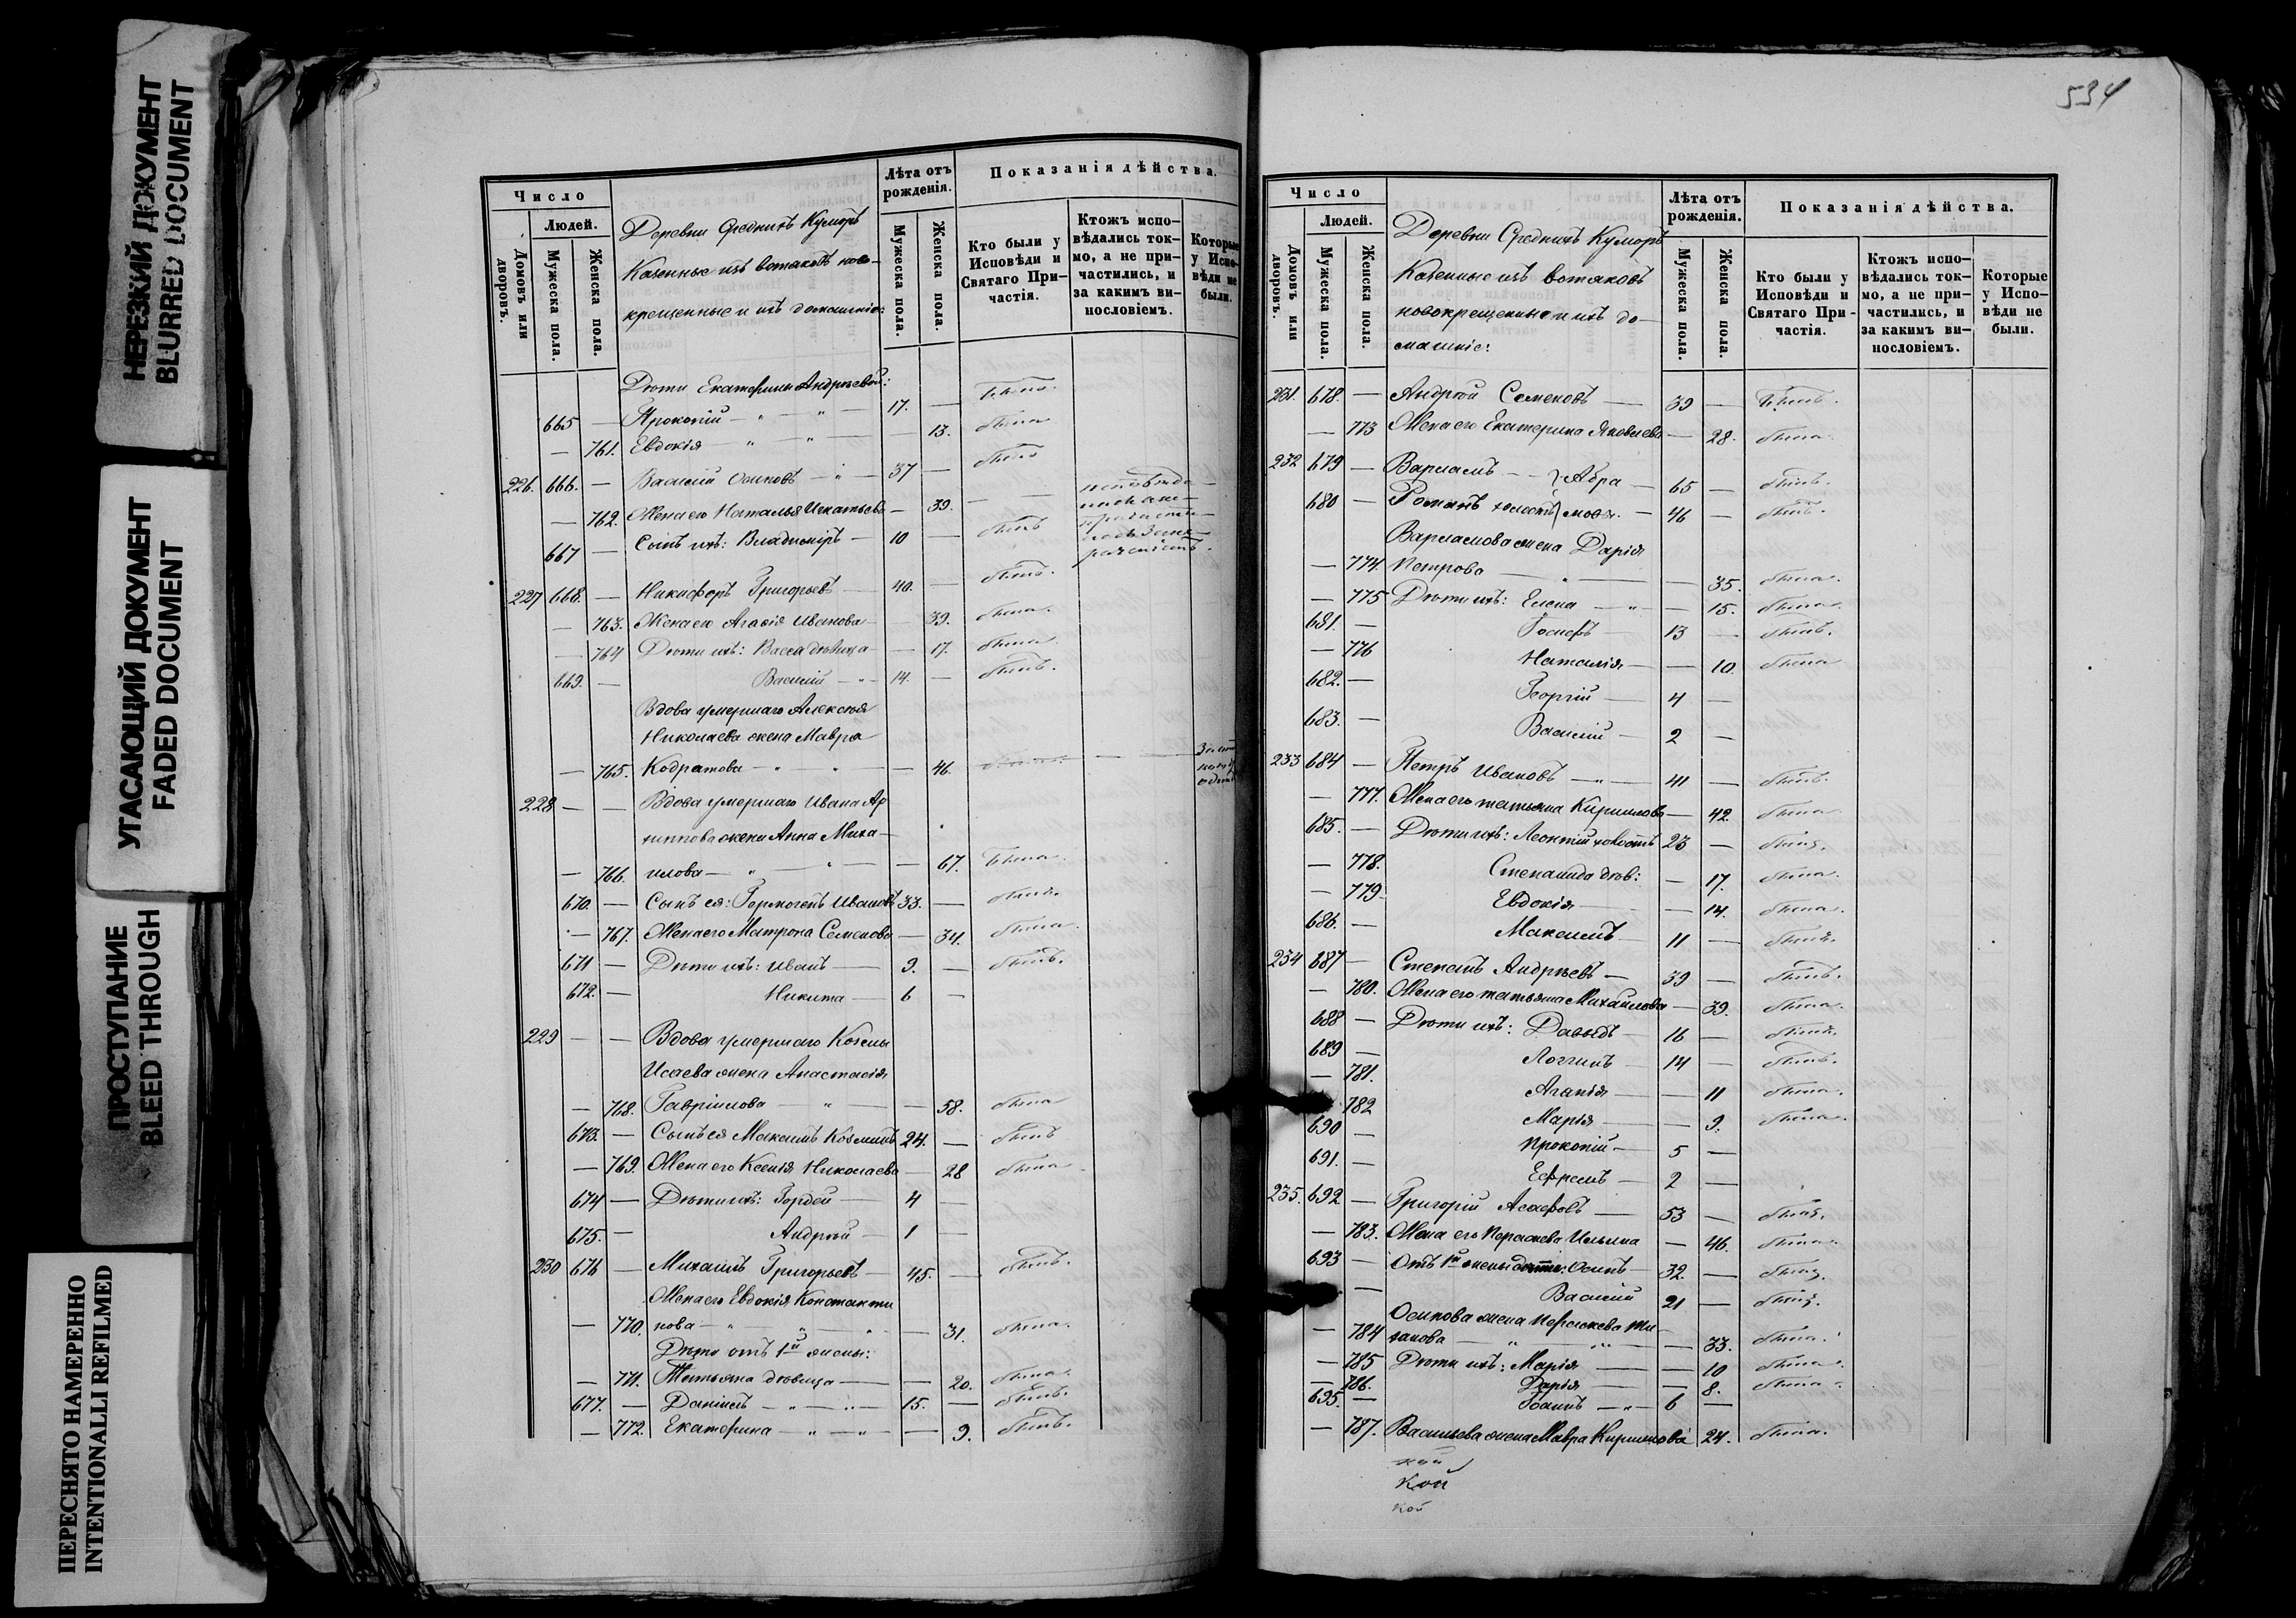 НЕРЕЗКИЙ ДОКУМЕНТ
BLURRED DOCUMENT
УГАСАЮЩИЙ ДОКУМЕНТ
FADED DOCUMENT
ПРОСТУПАНИЕ
BLEED THROUGH
ПЕРЕСНЯТО НАМЕРЕННО
INTENTIONALLI REFILMED
Число
Людей.
Домовъ или дворовъ.
Мужеска пола.
Женска пола.
Деревни Среднихъ Кумаръ
Казенные изъ вотяковъ ново-
крещенные и ихъ домашніе:
Лѣта отъ рожденія.
Мужеска пола.
Женска пола.
Показанія дѣйства.
Кто были у Исповѣди и Святаго При-частія.
Ктожъ испо-вѣдались ток-мо, а не при-частились, и за какимъ ви-нословіемъ.
Которые у Испо-вѣди не были.
Дѣти Екатерины Андреевой:
665 — Прокопій — " — " — 17. —
— 761. Евдокія — " — " — 13. была
226. 666. — Василій Осиповъ — " — 37 — былъ
— 762. Жена его Наталья Игнатьева — 39. — —
667 — Сынъ ихъ: Владиміръ — 10 — былъ
227 668. — Никифоръ Григорьевъ — 40. — былъ.
— 763. Жена его Агафія Иванова — 39. была.
— 764 Дѣти ихъ: Васса дѣвица — 17. была
669. — Василій — " — 14. — былъ.
Вдова умершаго Алексѣя
Николаева жена Мавра
— 765. Кодратова — " " — — 46.
228 — — Вдова умершаго Ивана Ар
хиппова жена Анна Миха-
— 766. илова — " — " — — 67. Была.
670. — Сынъ ея: Гермогенъ Ивановъ 33. — былъ.
— 767. Жена его Матрона Семенова — 34. была.
671 — Дѣти ихъ: Иванъ — 9. — былъ.
672. — Никита — 6 —
229 — — Вдова умершаго Козмы
Исаева жена Анастасія
— 768. Гавріилова — " — — 58. была
673. — Сынъ ея Максимъ Козминъ 24. — былъ
— 769. Жена его Ксенія Николаева — 28 была
674 — Дѣти ихъ: Гордей — 4 —
675. — Андрей — 1 —
230 676 — Михаилъ Григорьевъ — 45. — былъ.
Жена его Евдокія Константи
— 770. нова — " " " — 31. была.
Дѣти отъ 1й жены:
— 771. Татьяна дѣвица — — 20. была.
677. — Даніилъ — " — " — 15. — былъ.
— 772. Екатерина — " — " — — 9.
534
Число
Людей.
Домовъ или дворовъ.
Мужеска пола.
Женска пола.
Деревни Среднихъ Кумаръ
Казенные изъ вотяковъ
новокрещенные и ихъ до-
машніе:
Лѣта отъ рожденія.
Мужеска пола.
Женска пола.
Показанія дѣйства.
Кто были у Исповѣди и Святаго При-частія.
Ктожъ испо-вѣдались ток-мо, а не при-частились, и за какимъ ви-нословіемъ.
Которые у Испо-вѣди не были.
231. 678. — Андрей Семеновъ — 39 — Былъ.
— 773 Жена его Екатерина Яковлева — 28. была.
232 679 — Варламъ — 65 — былъ.
680 — Романъ холостъ — 46 — былъ.
Варламова жена Дарія
— 774. Петрова — " — — 35. была.
— 775 Дѣти ихъ: Елена — " — — 15. была.
681. — Іосифъ — 13 — былъ.
— 776 Наталія — — 10. была
682. — Георгій — 4 —
683. — Василій — 2 —
233 684 — Петръ Ивановъ — " — 41 — былъ.
— 777. Жена его Татьяна Кирилова — 42. была
685. — Дѣти ихъ: Леонтій холостъ 23 — былъ.
— 778. Степанида дѣв: — 17. была.
— 779. Евдокія — 14. была.
686. — Максимъ — 11 — былъ.
234 687 — Степанъ Андреевъ — 39 — былъ.
— 780. Жена его Татьяна Михайлова — 39. была.
688 — Дѣти ихъ: Давыдъ — 16 — былъ.
689 — Логгинъ — 14 — былъ.
— 781. Агапія — — 11 была.
782 Марія — — 9. была.
690 — Прокопій — 5 —
691. — Ефремъ — 2 —
235. 692 — Григорій Асафовъ — 53 — былъ.
— 783. Жена его Параскева Ильина — 46. была.
693 — Отъ 1й жены дѣти: Осипъ — 32. — былъ.
— Василій 21 — былъ.
Осипова жена Параскева Ти-
— 784 ханова — " — " — — 33. была.
— 785 Дѣти ихъ: Марія — — 10 была.
— 786. Дарія — — 8. была.
695. — Іоаннъ — " — 6 —
— 787. Васильева жена Мавра Кирилова 24. была.
кой
кой